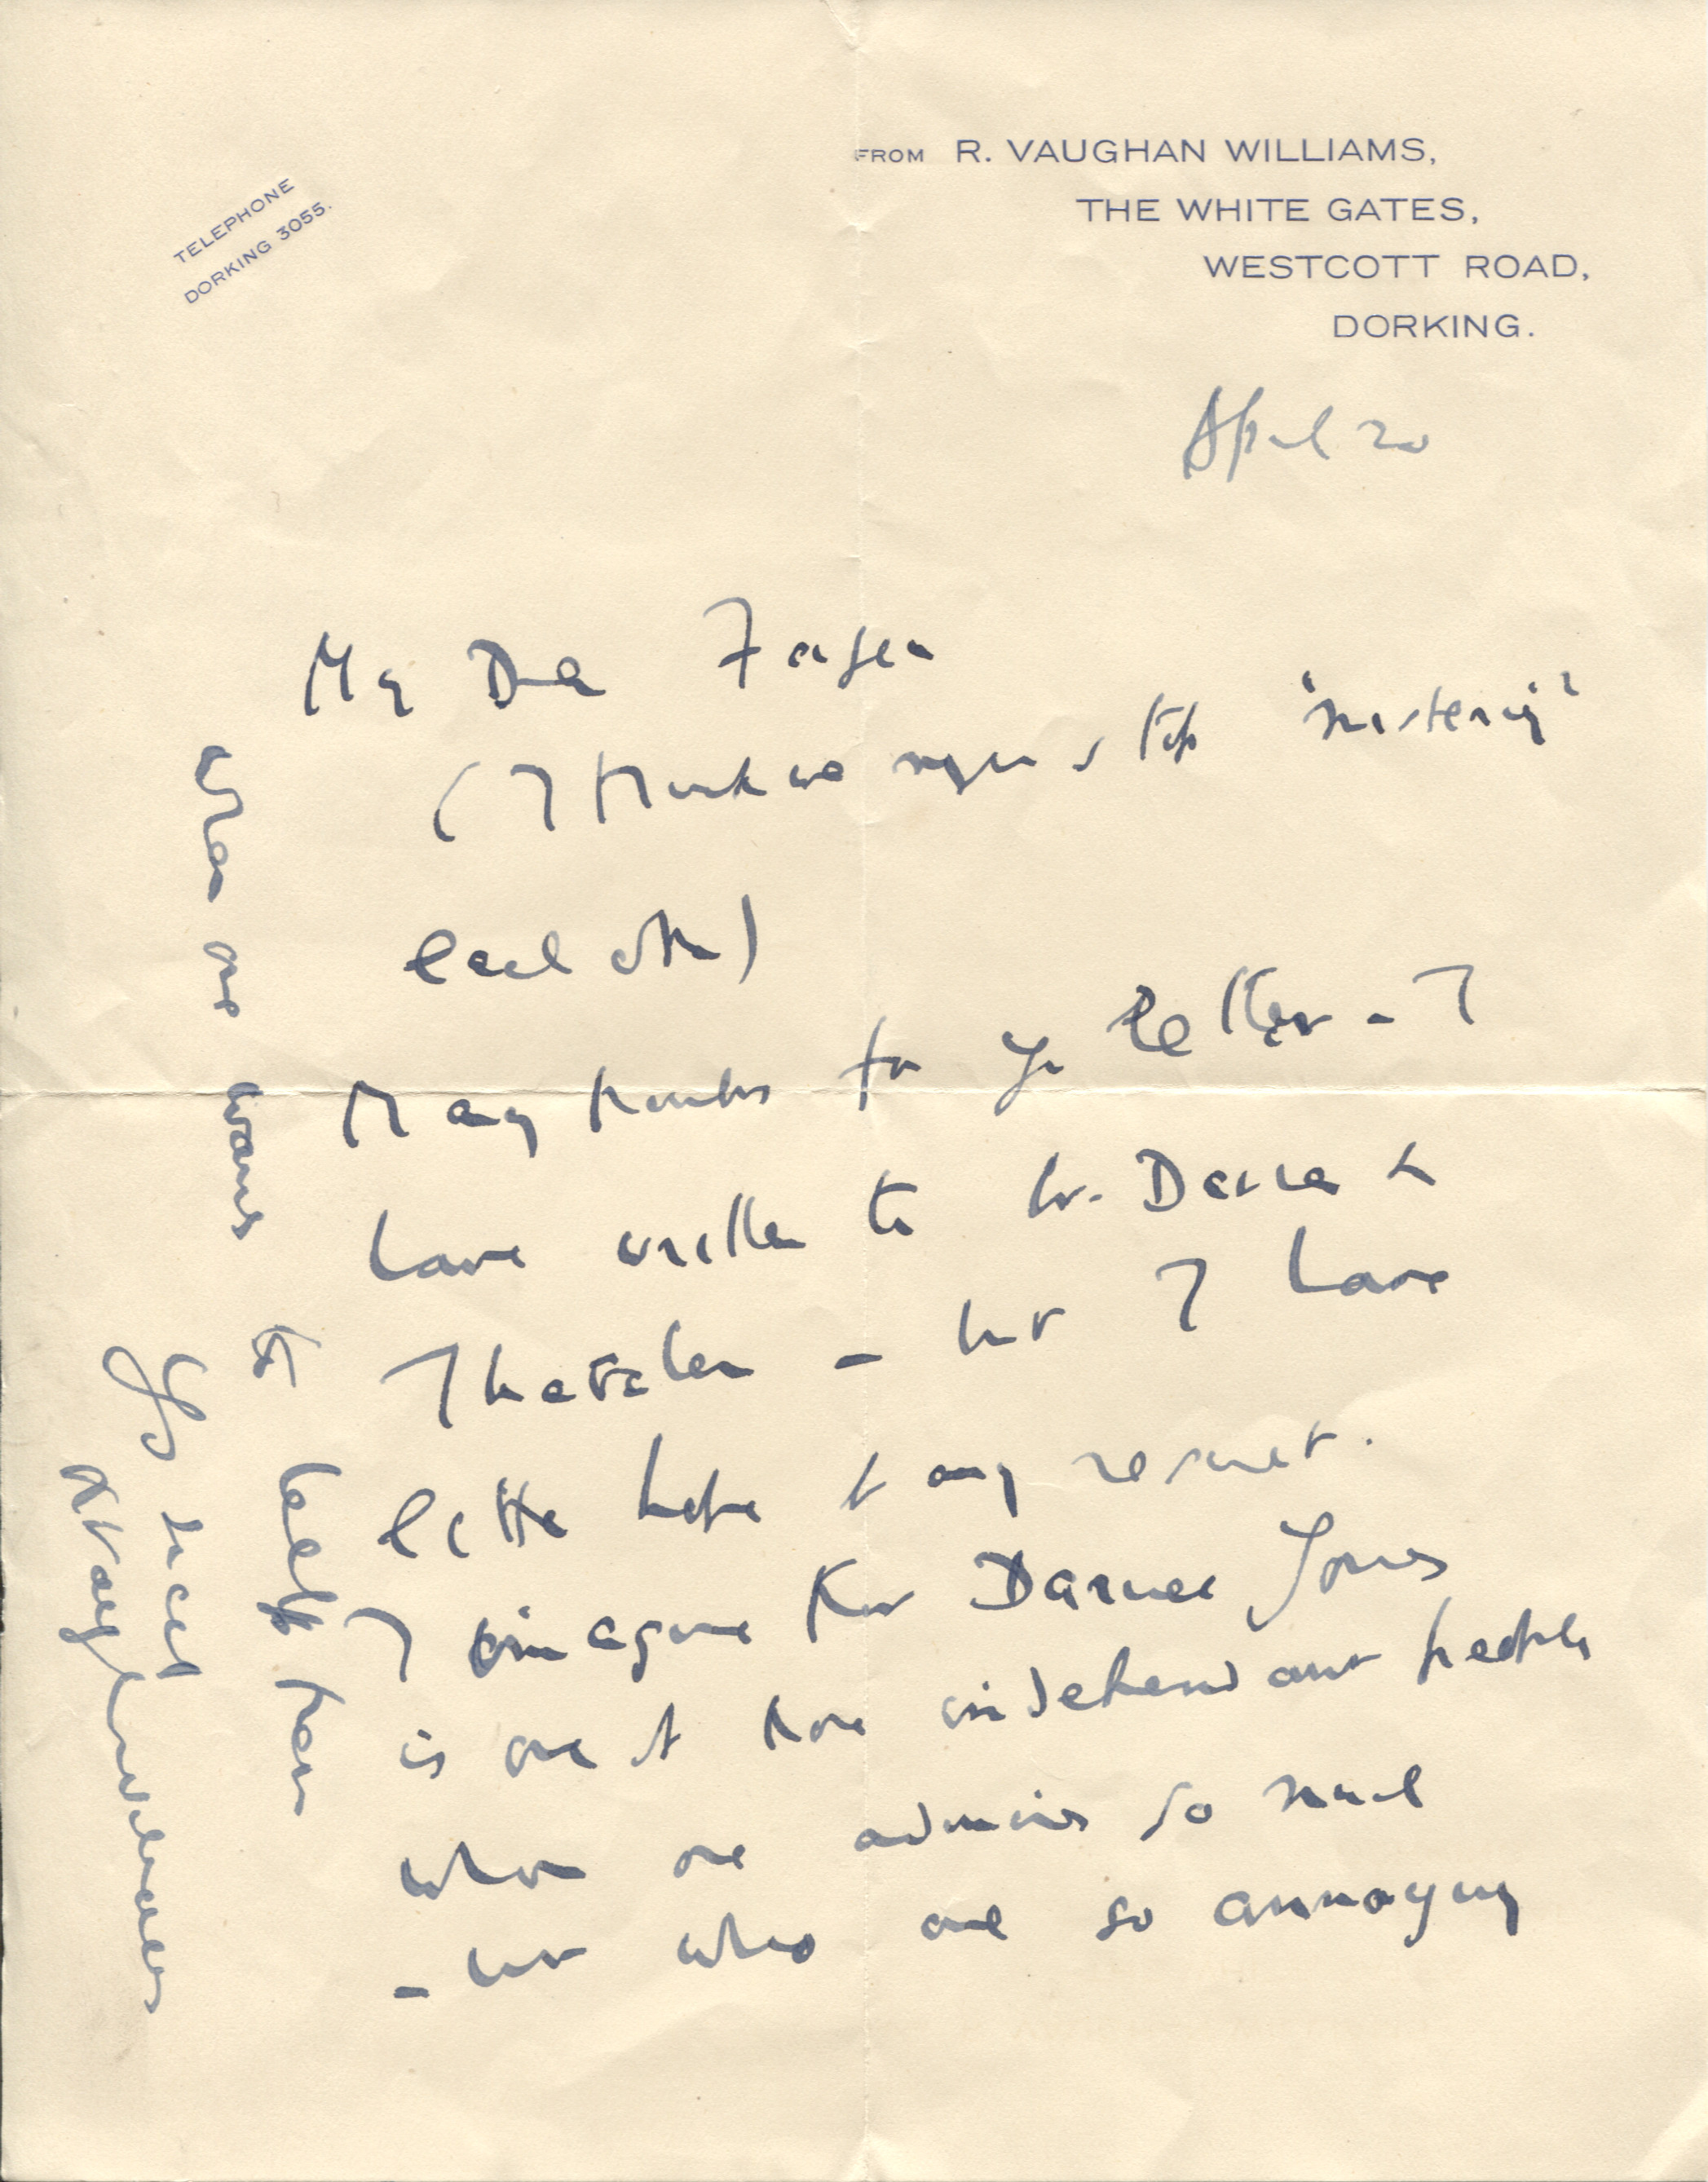 TELEPHONE
DORKING 3055.
FROM R. VAUGHAN WILLIAMS,
THE WHITE GATES,
WESTCOTT ROAD,
DORKING.
April 20
My Dear
(I think we might stop 'mistering'
each other)
Many thanks for yr letter - I
have written to
Thatcher - but I have
little hope of any result.
I imagine that Darnell Jones
is one of those independant people
whom one admires so much
- but who are so annoying
when one wants to help them
Yrs sincely
R Vaughan Williams